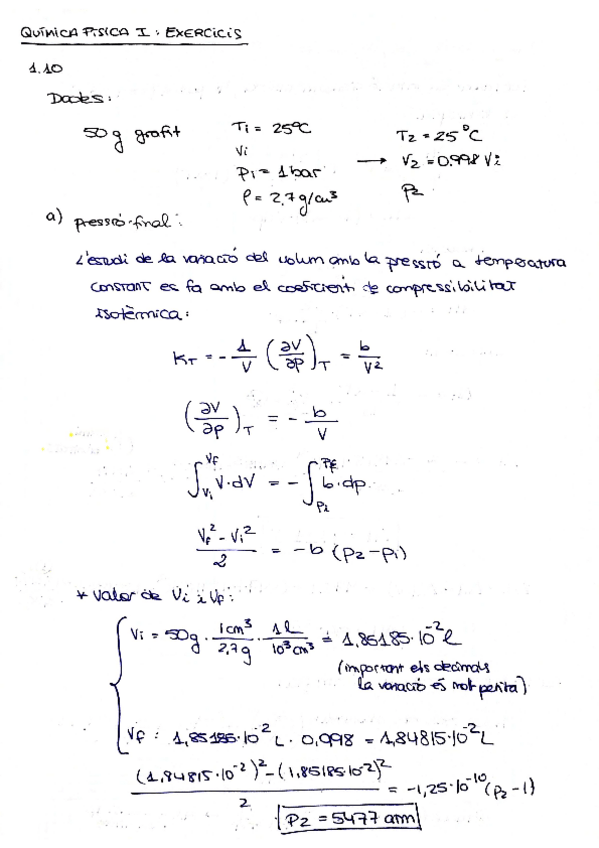 QUÍMICA FISICA I : EXERCICIS
1.10
Dades:
50 g grafit
Ti = 25ºC
Vi
Pi = 1 bar
ρ = 2,7 g/cm³
→
T2 = 25ºC
V2 = 0.998 Vi
P2
a) pressió final:
L'estudi de la variació del volum amb la pressió a temperatura
constant es fa amb el coeficient de compressibilitat
isotèrmica:
KT = - 1/V (∂V/∂P)T = b/V²
(∂V/∂p)T = - b/V
∫Vi Vf V·dV = - ∫Pi Pf b·dp
(Vf² - Vi²)/2 = -b (P2-Pi)
* Valor de Vi i Vf:
Vi = 50g · 1cm³/2,7g · 1l/10³cm³ = 1,85185·10⁻² l
(important els decimals
la variació és molt petita)
Vf : 1,85185·10⁻² L · 0,998 = 1,84815·10⁻² L
((1,84815·10⁻²)² - (1,85185·10⁻²)²)/2 = -1,25·10⁻¹⁰ (P2-1)
P2 = 5477 atm